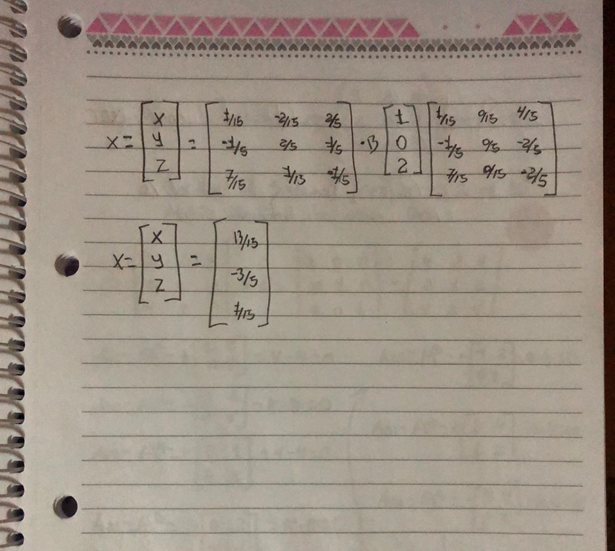 x = [x y z] = [1/15 -2/15 2/5; -1/5 2/5 -1/5; 7/15 1/15 -1/5] · B [1 0 2] [1/15 0/15 4/15; -1/5 0/5 -2/5; 7/15 0/15 -2/5]
x = [x y z] = [13/15 -3/5 1/15]